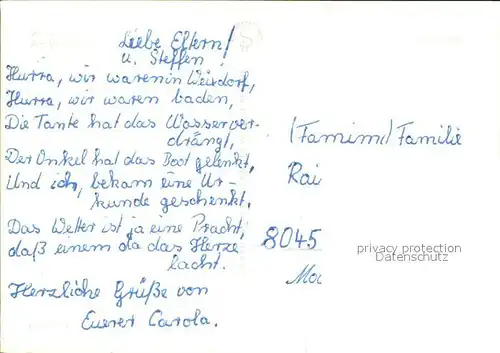 Liebe Eltern!
u. Steffen!
Hurra, wir waren in Weisdorf,
Hurra, wir waren baden,
Die Tante hat das Wasser ver-
drängt,
Der Onkel hat das Boot gelenkt,
Und ich, bekam eine Ur-
kunde geschenkt.
Das Wetter ist ja eine Pracht,
daß einem da das Herze
lacht.
Herzliche Grüße von
Eurer Carola.
(Famimi) Familie
Rai
8045
privacy protection
Datenschutz